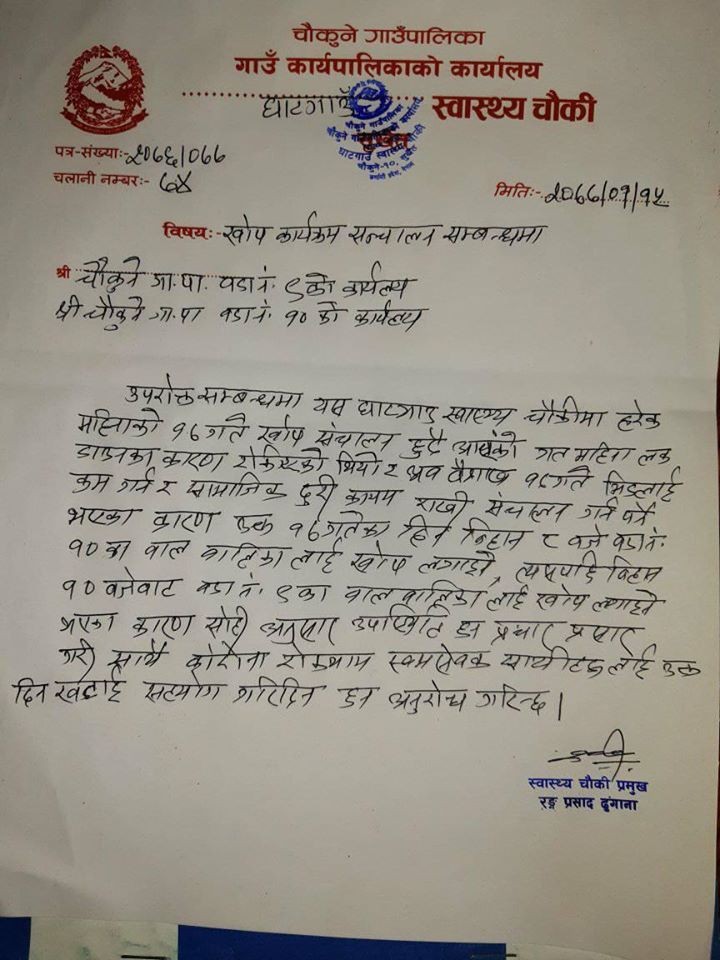 चौकुने गाउँपालिका
गाउँ कार्यपालिकाको कार्यालय
घाटगाउँ स्वास्थ्य चौकी
सुर्खेत
पत्र-संख्याः- २०७६/०७७
चलानी नम्बरः- ७४
मितिः- २०७७/०१/१५
विषयः- खोप कार्यक्रम सन्चालन सम्बन्धमा
श्री चौकुने गा.पा. वडा नं. ९ को कार्यालय
श्री चौकुने गा.पा वडा नं. १० को कार्यलय
उपरोक्त सम्बन्धमा यस घाटगाउ स्वास्थ्य चौकीमा हरेक
महिनाको १६ गते खोप संचालन हुदै आएको गत महिना लक
डाउनका कारण रोकिएको थियो र अव वैशाख १६ गते भिडलाई
कम गर्न र सामाजिक दुरी कायम राखी संचालन गर्नु पर्ने
भएका कारण उक्त १६ गतेका दिन विहान ८ वजे वडा नं.
१० का वाल वालिका लाई खोप लगाइने, त्यसपछि विहान
१० वजेवाट वडा नं. ९ का वाल वालिका लाई खोप लगाइने
भएका कारण सोही अनुसार उपस्थिति हुन प्रचार प्रसार
गरी साथै कोरोना रोकथाम स्वमसेवक साथीहरु लाई उक्त
दिन खटाई सहयोग गरिदिन हुन अनुरोध गरिन्छ।
स्वास्थ्य चौकी प्रमुख
रङ्ग प्रसाद ढुंगाना